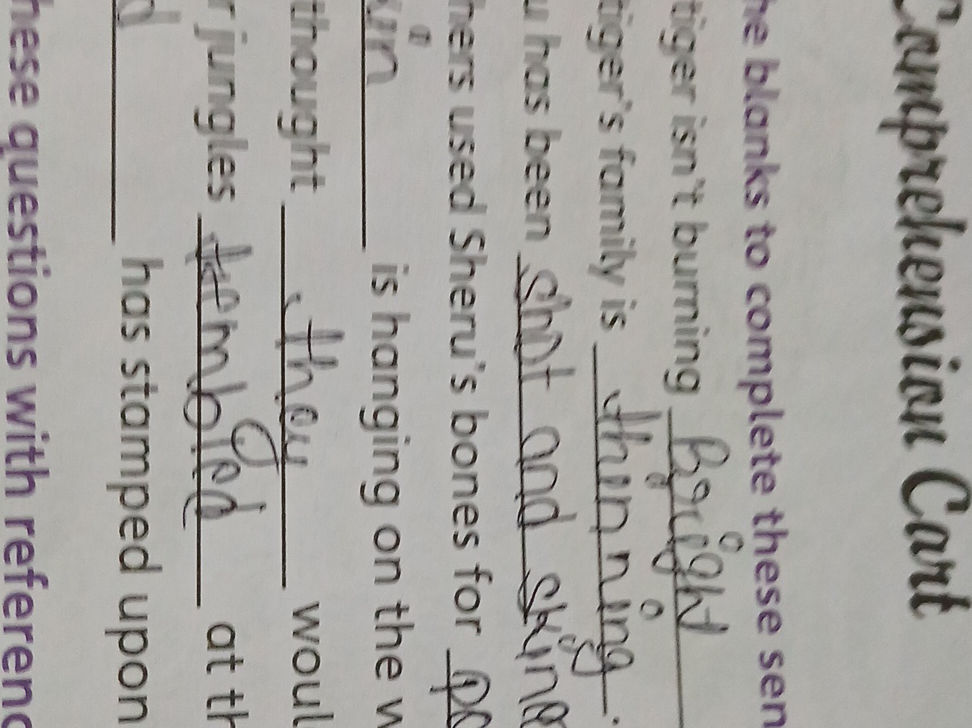 Comprehension Cart
he blanks to complete these sen
tiger isn't burning Bright
tiger's family is thinning.
u has been shot and skinne
hers used Sheru's bones for
is hanging on the w
thought they woul
r jungles trembled at th
has stamped upon
hese questions with referenc